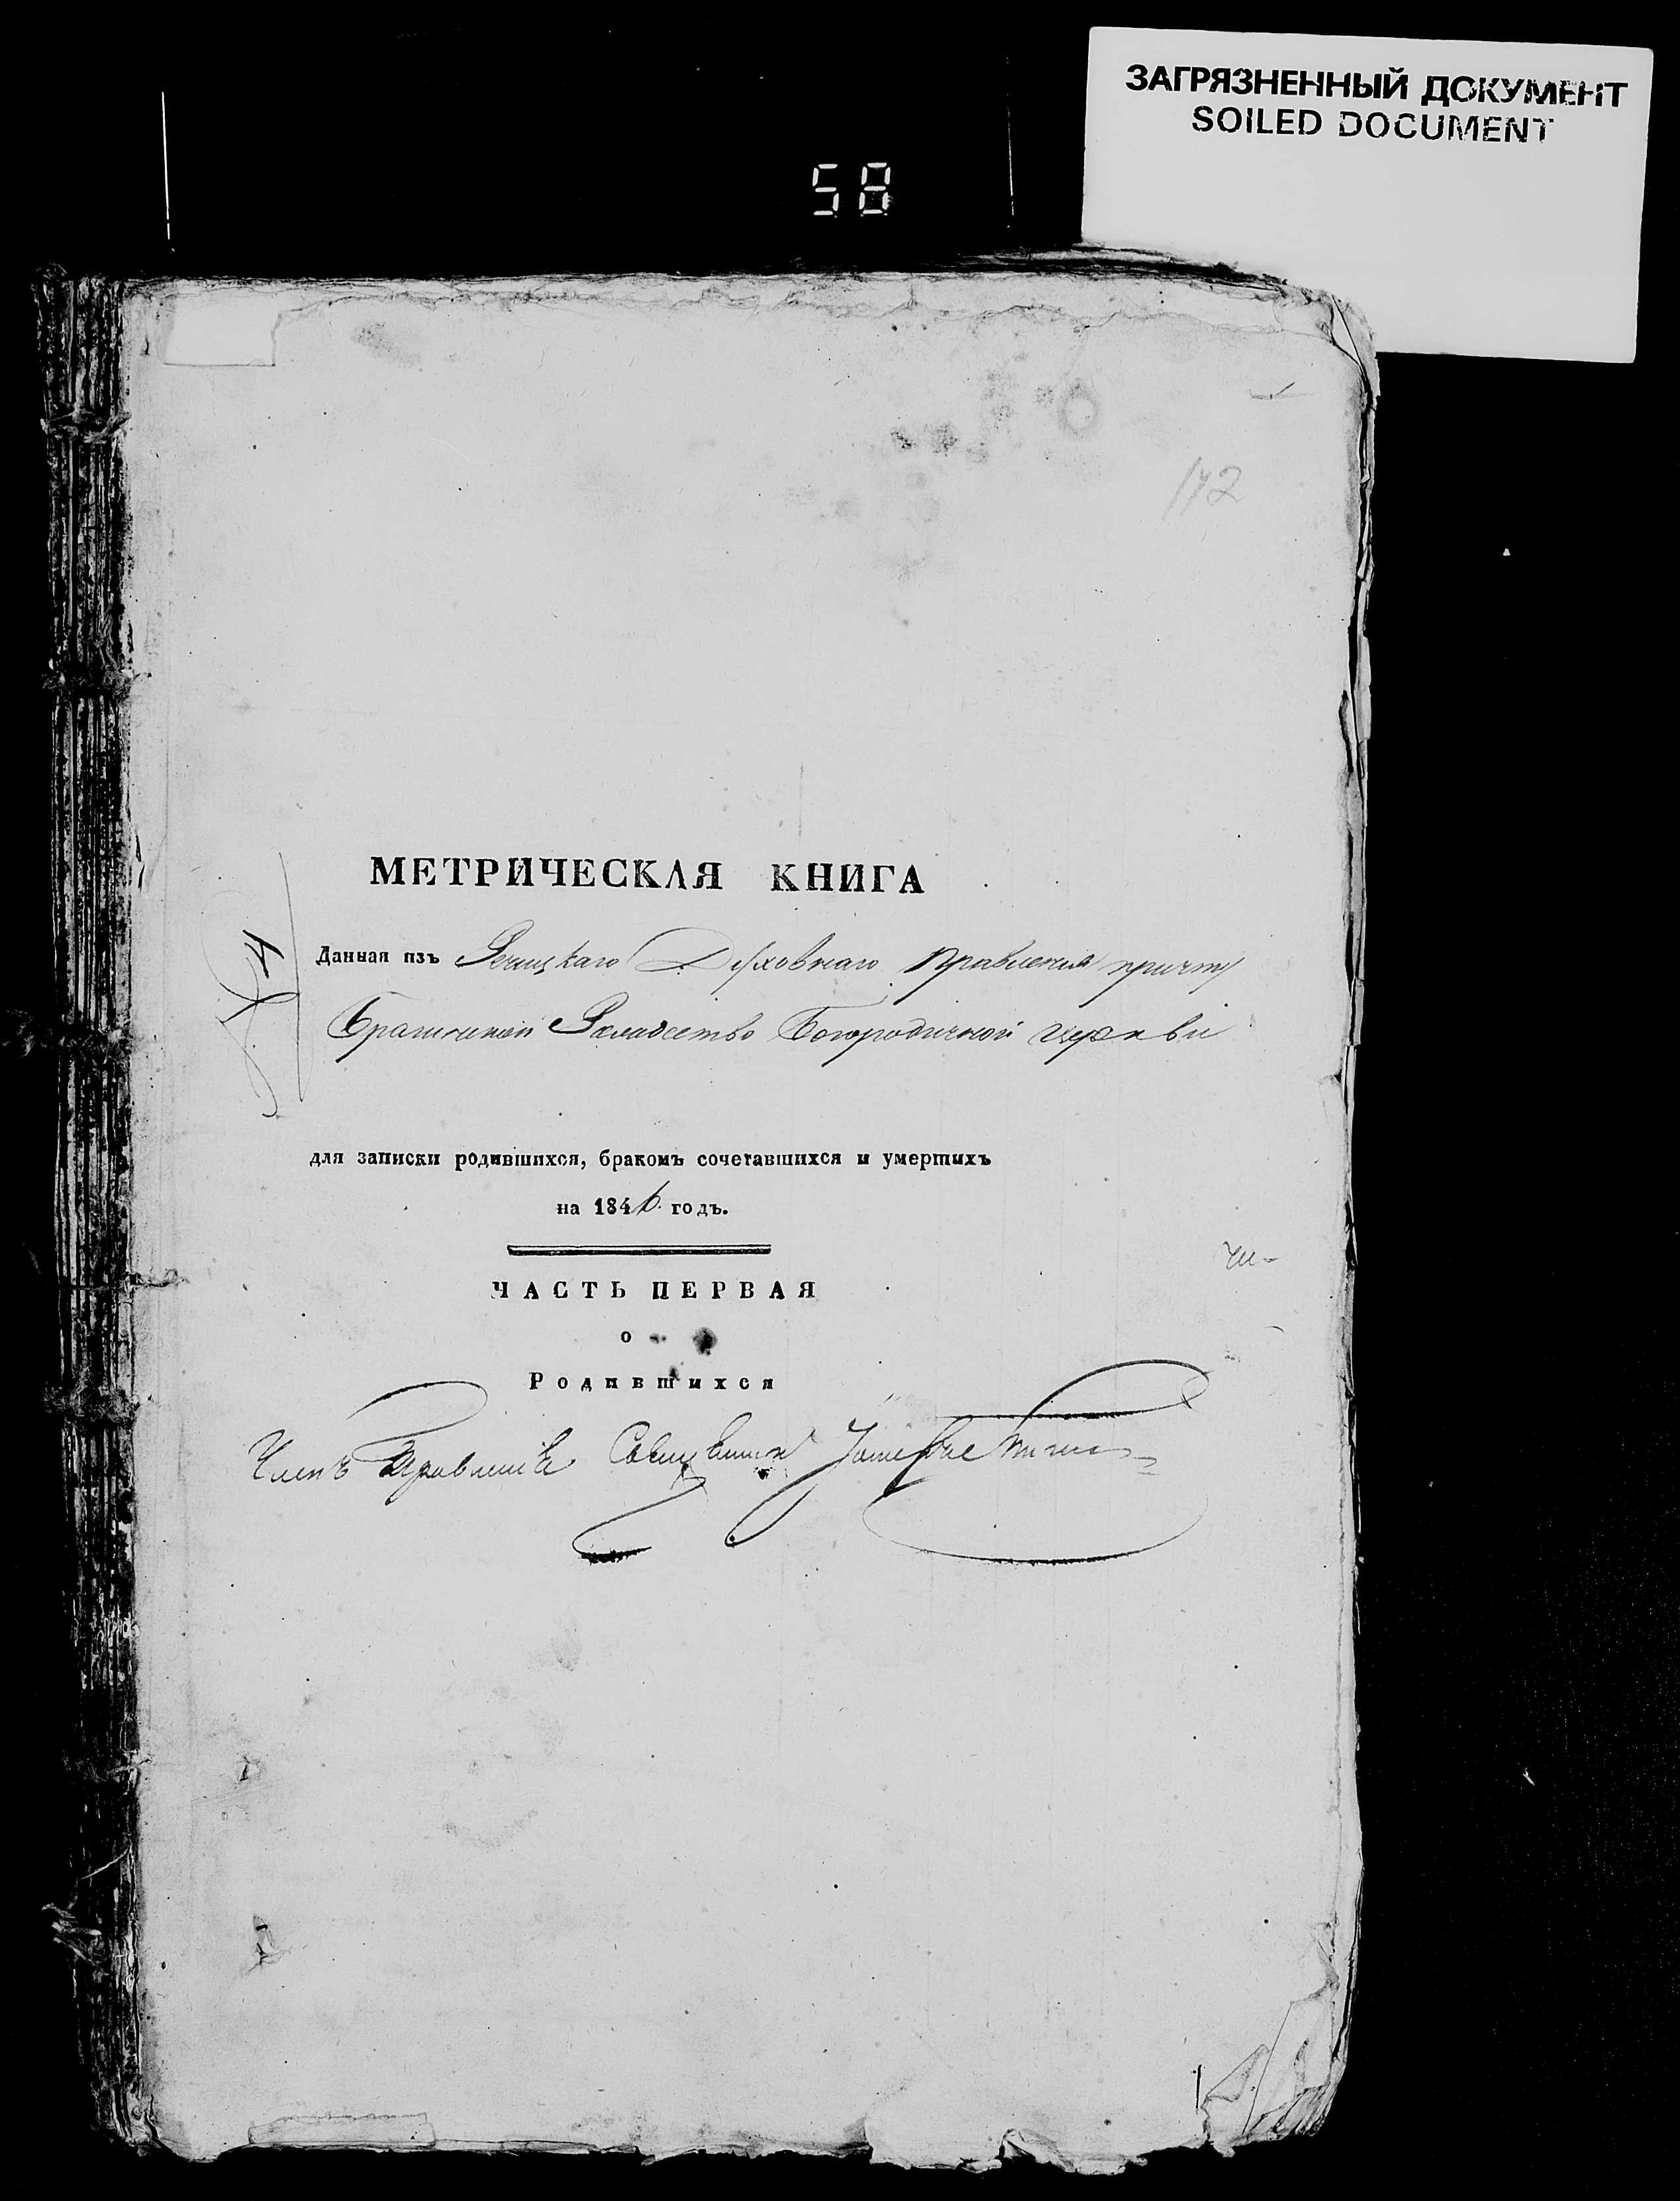 ЗАГРЯЗНЕННЫЙ ДОКУМЕНТ
SOILED DOCUMENT
58
142
МЕТРИЧЕСКАЯ КНИГА
Данная изъ Речицкаго Духовнаго Правленія причту
Брагинской Рождество Богородичной церкви
для записки родившихся, бракомъ сочетавшихся и умершихъ
на 1846 годъ.
ЧАСТЬ ПЕРВАЯ
о
Родившихся
Членъ Правленія Священникъ